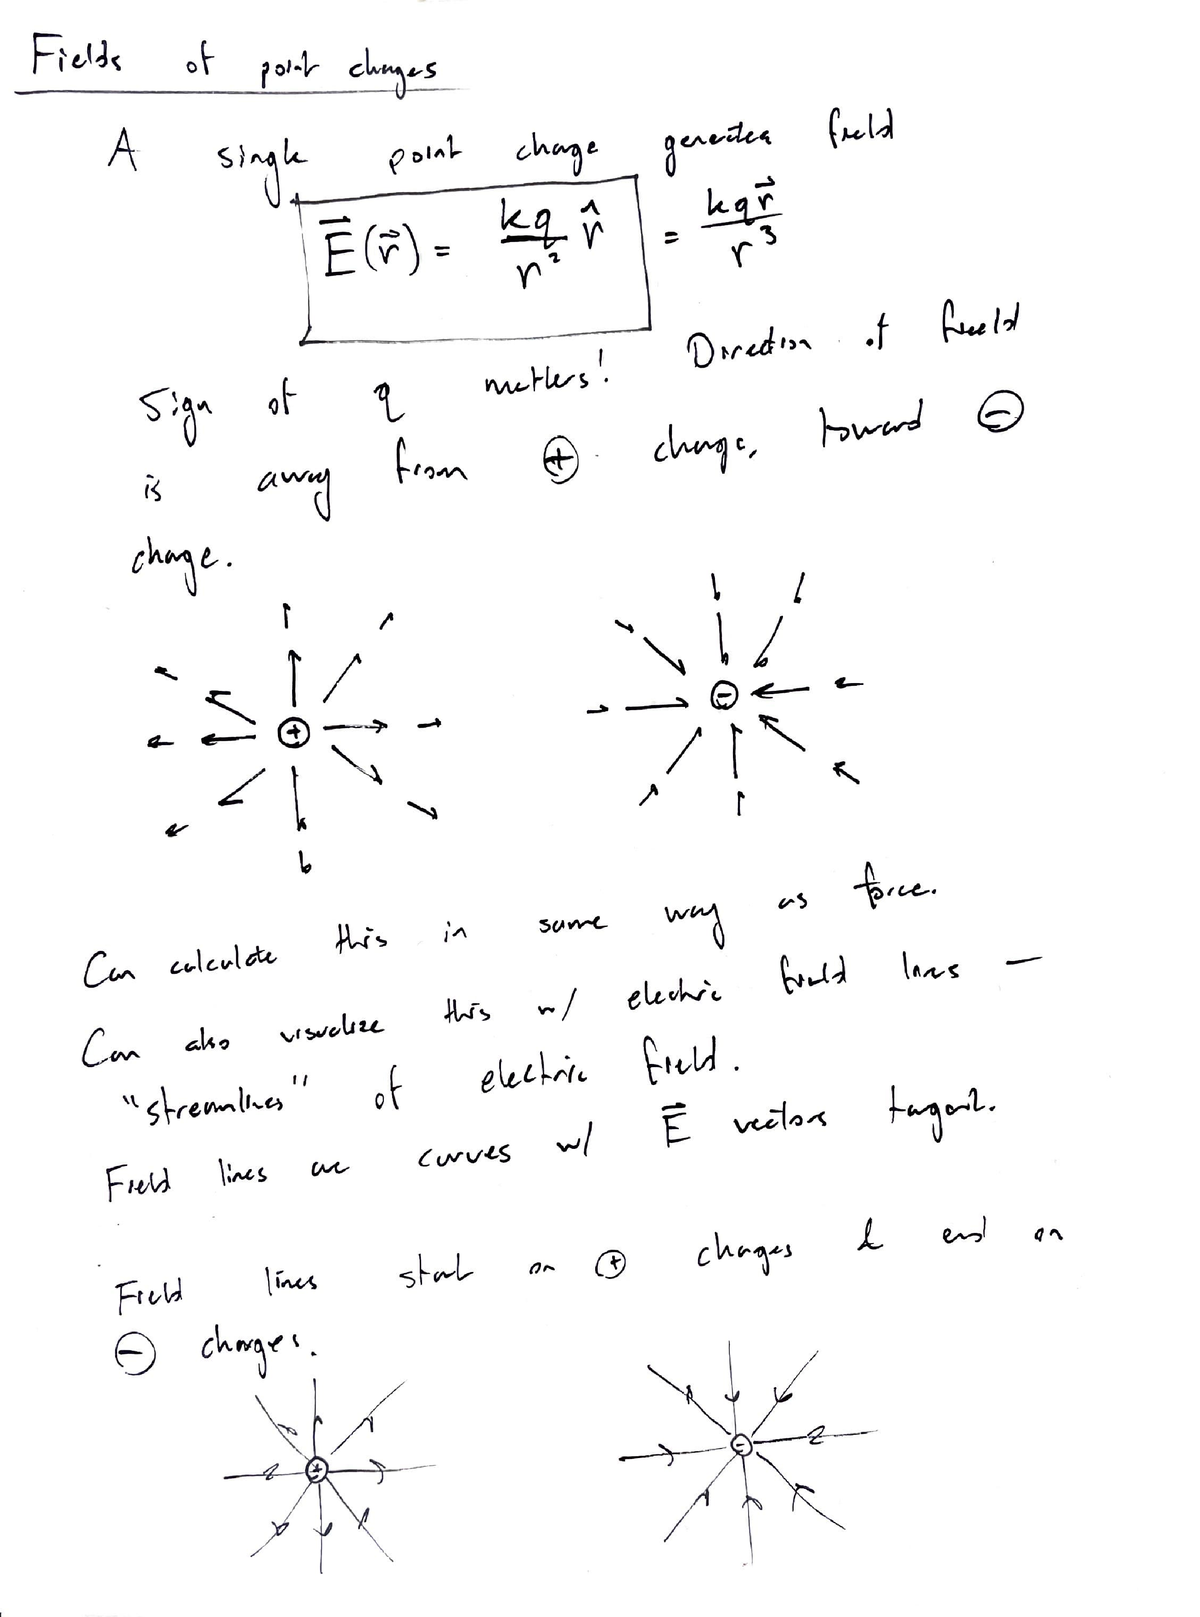 Fields of point charges
A single point charge generates field
$\vec{E}(\vec{r}) = \frac{kq}{r^2} \hat{r} = \frac{kq\vec{r}}{r^3}$
Sign of q matters! Direction of field
is away from ⊕ charge, toward ⊖
charge.
⊕ ⊖
Can calculate this in same way as force.
Can also visualize this w/ electric field lines —
"streamlines" of electric field.
Field lines are curves w/ $\vec{E}$ vectors tangent.
Field lines start on ⊕ charges & end on
⊖ charges.
⊕ ⊖